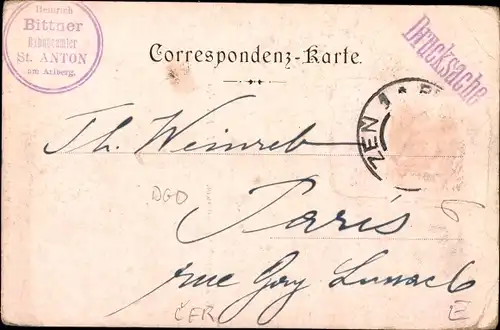 Heinrich
Bittner
Bahnbeamter
St. ANTON
am Arlberg.
Correspondenz-Karte.
Drucksache
ZEN 1
Th. Weinreb
DGD
Paris
rue Gay Lussac 6
ČER
E